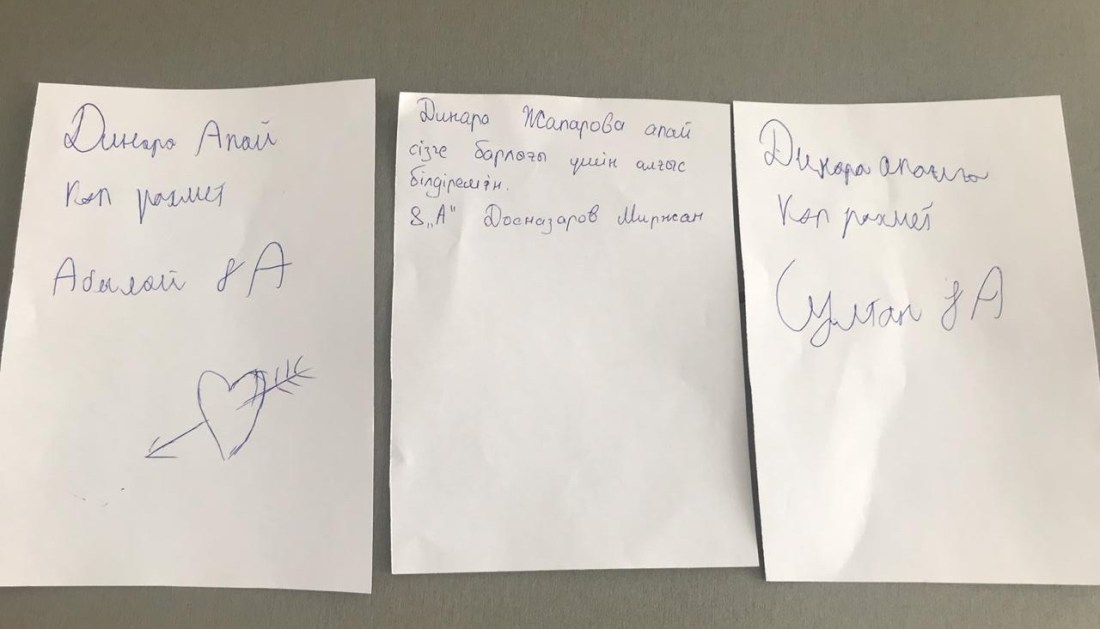 Динара Апай
Көп рахмет
Абылай 8 А
Динара Жапарова апай
сізге барлығы үшін алғыс
білдіремін.
8 „А" Досназаров Миржан
Динара апайға
Көп рахмет
Султан 8 А